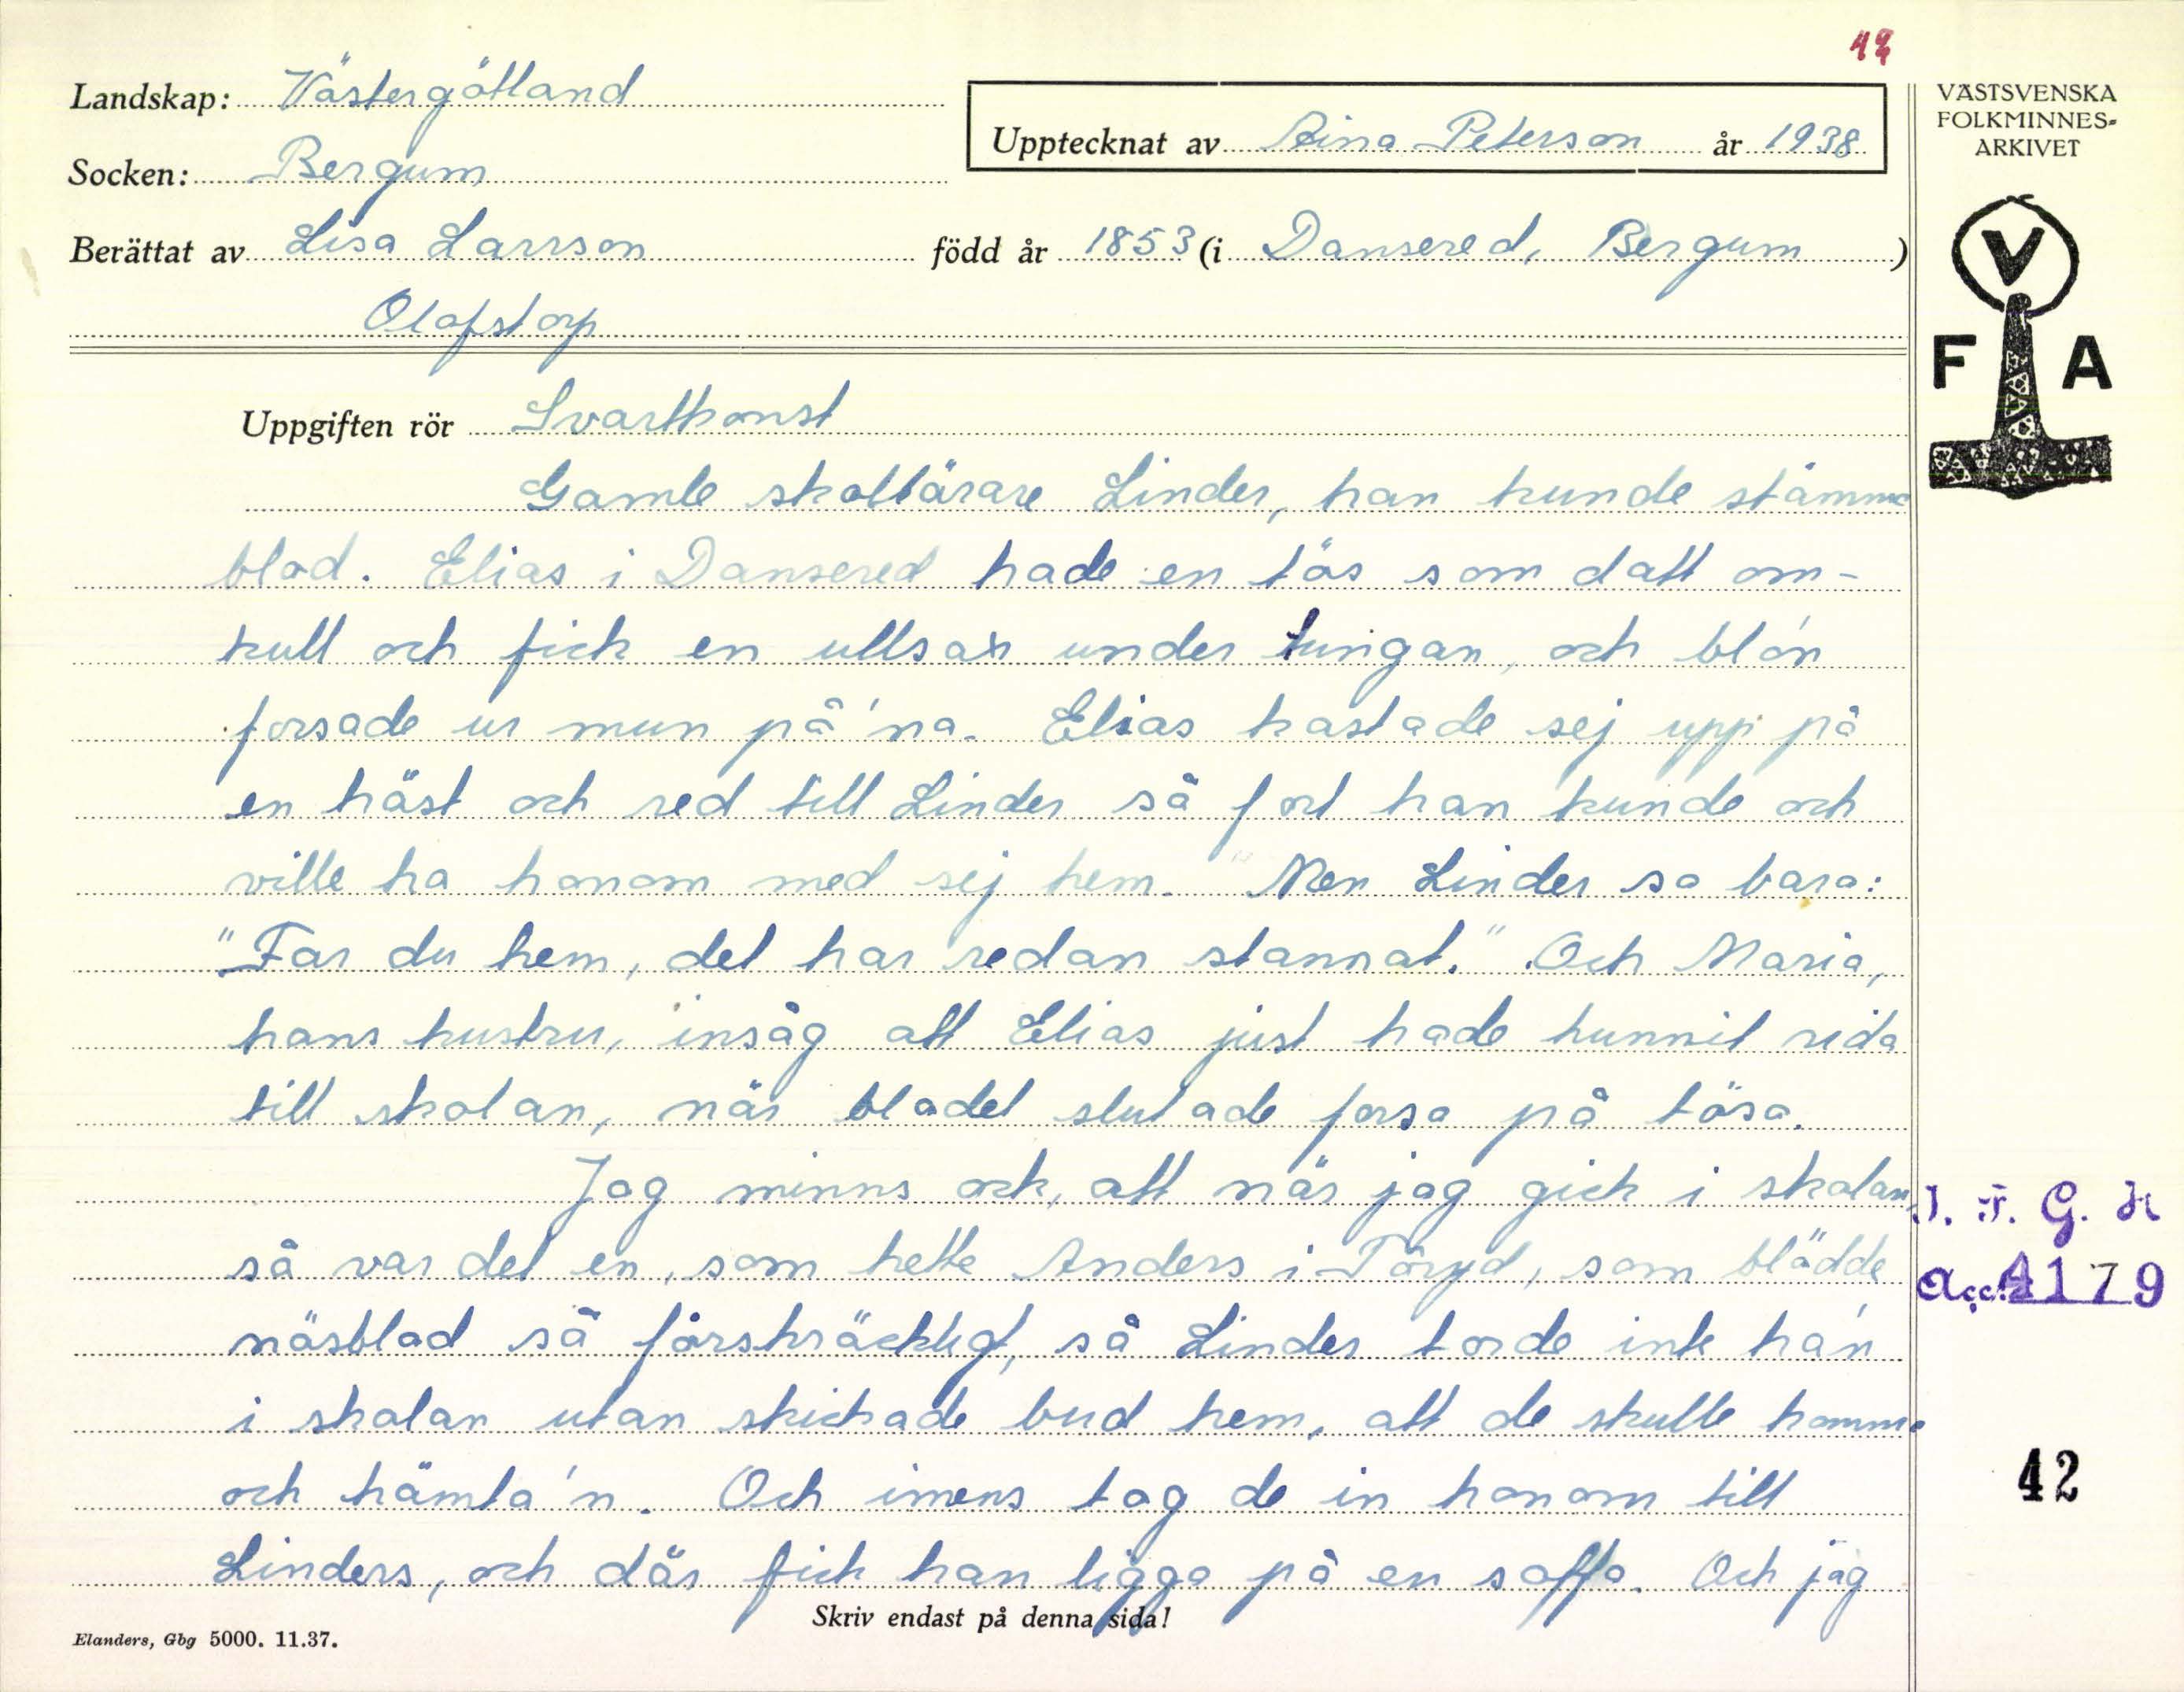 Landskap: Västergötland
Socken: Bergum
Upptecknat av Aina Peterson år 1938
Berättat av Lisa Larsson född år 1853 (i Dansered, Bergum)
Olofstorp
VÄSTSVENSKA
FOLKMINNES-
ARKIVET
V
F A
Uppgiften rör Svartkonst
Gamle skollärare Linder, han kunde stämma
blod. Elias i Dansered hade en tös som datt om-
kull och fick en ullsax under tungan, och blo'n
forsade ur mun på'na. Elias kastade sej upp på
en häst och red till Linder så fort han kunde och
ville ha honom med sej hem. Men Linder sa bara:
"Far du hem, det har redan stannat." Och Maria,
hans hustru, insåg att Elias just hade hunnit rida
till skolan, när blodet slutade forsa på tösa.
Jag minns ock, att när jag gick i skolan,
så var det en, som hette Anders i Töryd, som blödde
näsblod så förskräckligt, så Linder torde inte ha'n
i skolan utan skickade bud hem, att de skulle komma
och hämta'n. Och imens tog de in honom till
Linders, och där fick han ligga på en soffa. Och jag
I. F. G. H
Acc. 4179
42
Skriv endast på denna sida!
Elanders, Gbg 5000. 11.37.